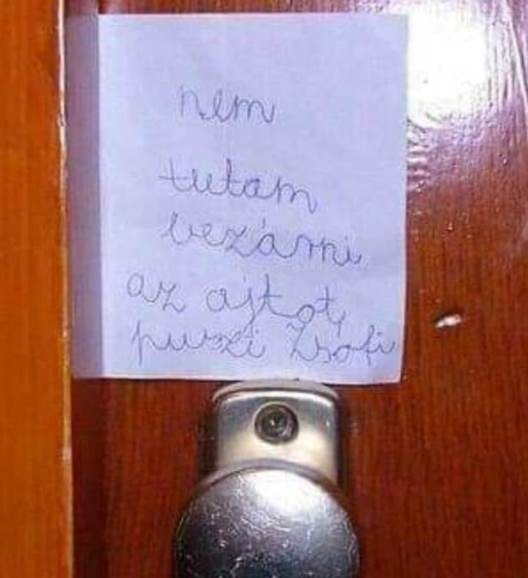 nem
tutam
bezárni
az ajtot,
puszi Zsófi